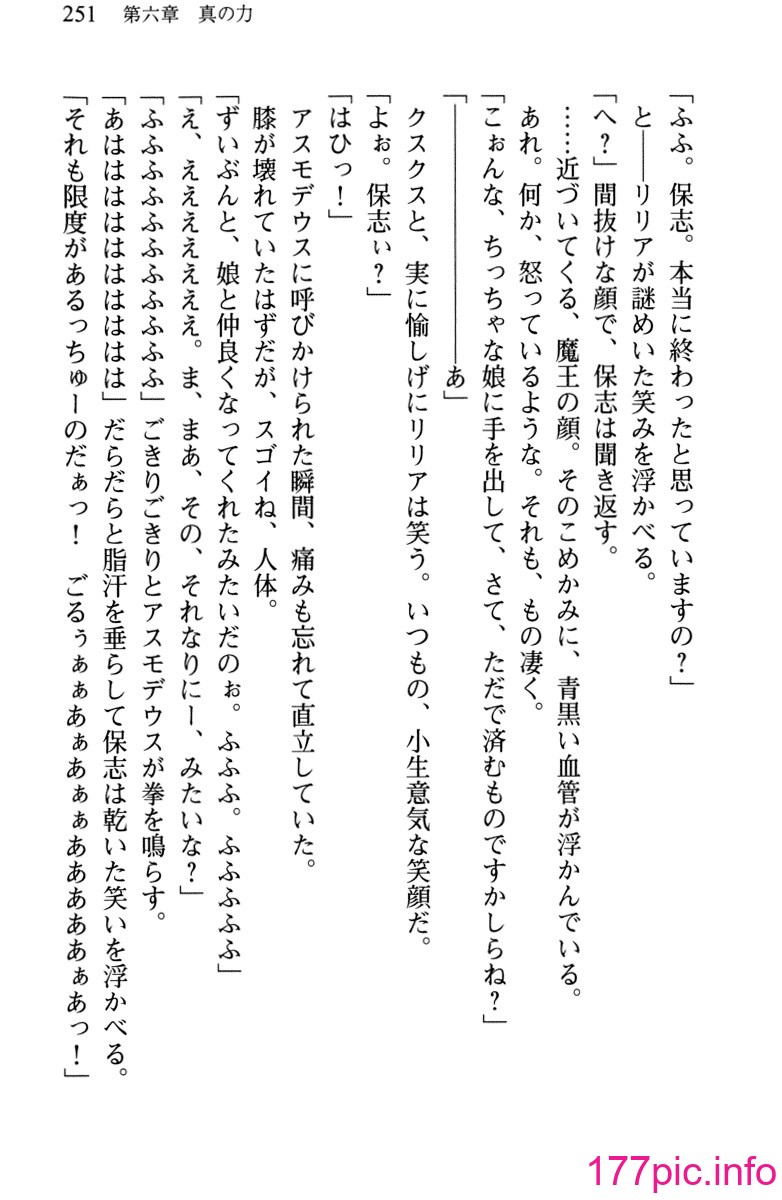 251　第六章　真の力
「ふふ。保志。本当に終わったと思っていますの？」
と――リリアが謎めいた笑みを浮かべる。
「へ？」間抜けな顔で、保志は聞き返す。
……近づいてくる、魔王の顔。そのこめかみに、青黒い血管が浮かんでいる。
あれ。何か、怒っているような。それも、もの凄く。
「こぉんな、ちっちゃな娘に手を出して、さて、ただで済むものですかしらね？」
「――――――――あ」
クスクスと、実に愉しげにリリアは笑う。いつもの、小生意気な笑顔だ。
「よぉ。保志ぃ？」
「はひっ！」
アスモデウスに呼びかけられた瞬間、痛みも忘れて直立していた。
膝が壊れていたはずだが、スゴイね、人体。
「ずいぶんと、娘と仲良くなってくれたみたいだのぉ。ふふふ。ふふふふふ」
「え、ええええええ。ま、まあ、その、それなりにー、みたいな？」
「ふふふふふふふふふふふ」ごきりごきりとアスモデウスが拳を鳴らす。
「あはははははははははは」だらだらと脂汗を垂らして保志は乾いた笑いを浮かべる。
「それも限度があるっちゅーのだぁっ！　ごるぅぁぁあぁあぁぁあああああぁあっ！」
177pic.info